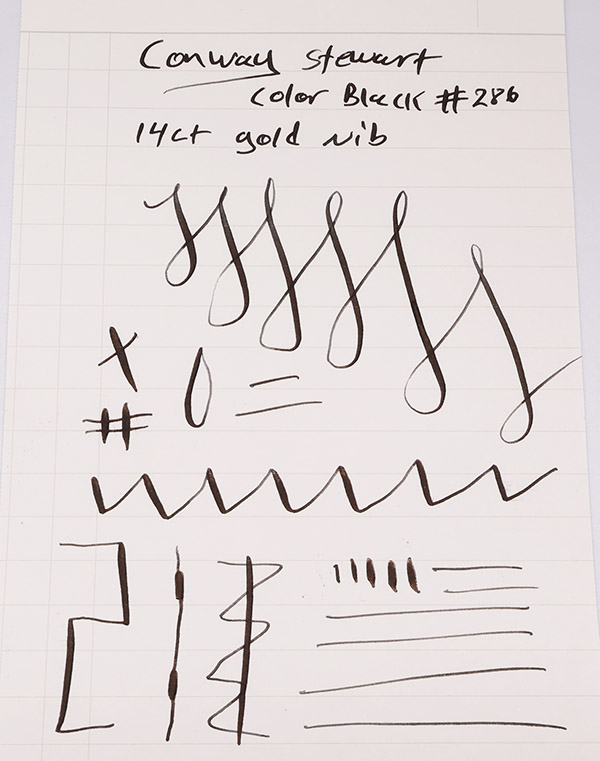 Conway Stewart
Color Black #286
14ct gold Nib